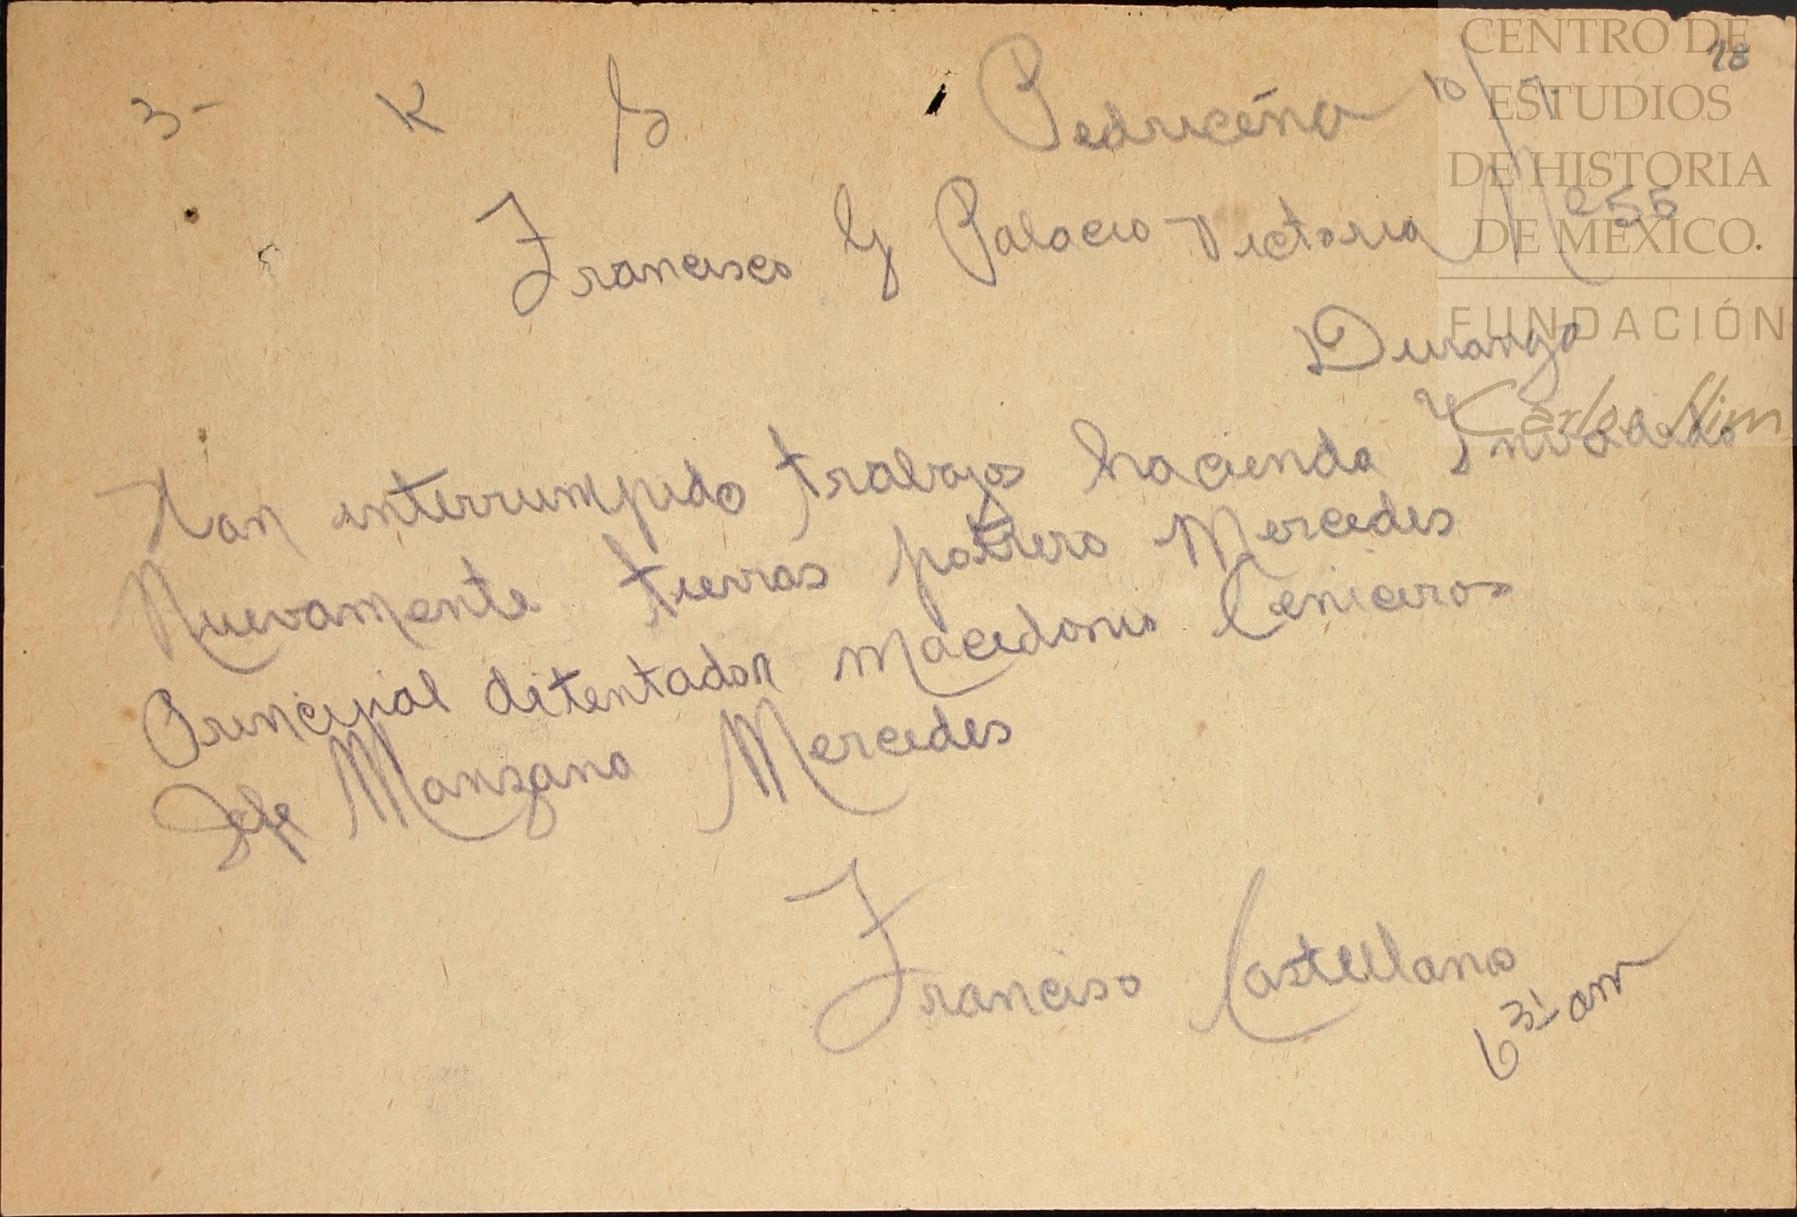 CENTRO DE
ESTUDIOS
DE HISTORIA
DE MÉXICO.
FUNDACIÓN
Carlos Slim
28
3- K G Pedriceña 10/
Francisco G Palacio Victoria N 255
Durango
Han interrumpido trabajos hacienda Invadido
Nuevamente tierras potrero Mercedes
Principial ditentador Macedonio Ceniceros
Jefe Manzana Mercedes
Franciso Castellanos
6 31 am